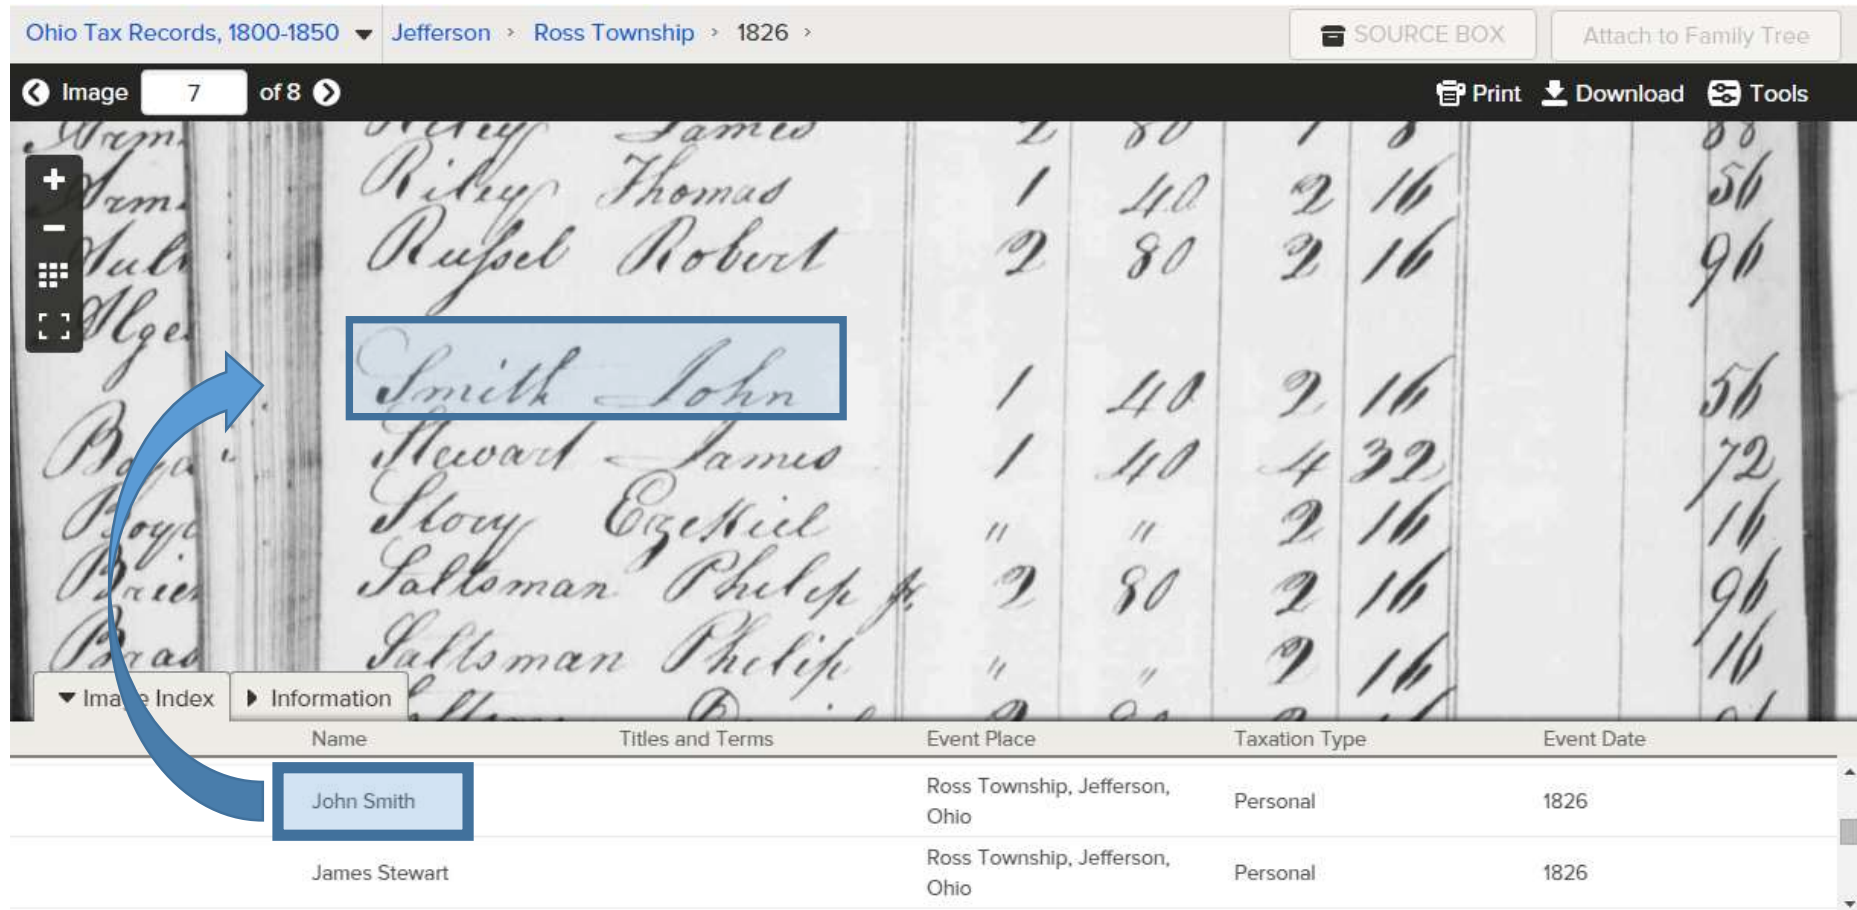 Ohio Tax Records, 1800-1850 Jefferson > Ross Township > 1826 > SOURCE BOX Attach to Family Tree
Image 7 of 8 Print Download Tools
Riley James 2 80 1 8 88
Riley Thomas 1 40 2 16 56
Russel Robert 2 80 2 16 96
Smith John 1 40 2 16 56
Stewart James 1 40 4 32 72
Story Ezekiel " " 2 16 16
Saltsman Philip jr. 2 80 2 16 96
Saltsman Philip " " 2 16 16
Image Index Information
Name Titles and Terms Event Place Taxation Type Event Date
John Smith Ross Township, Jefferson, Personal 1826
Ohio
James Stewart Ross Township, Jefferson, Personal 1826
Ohio